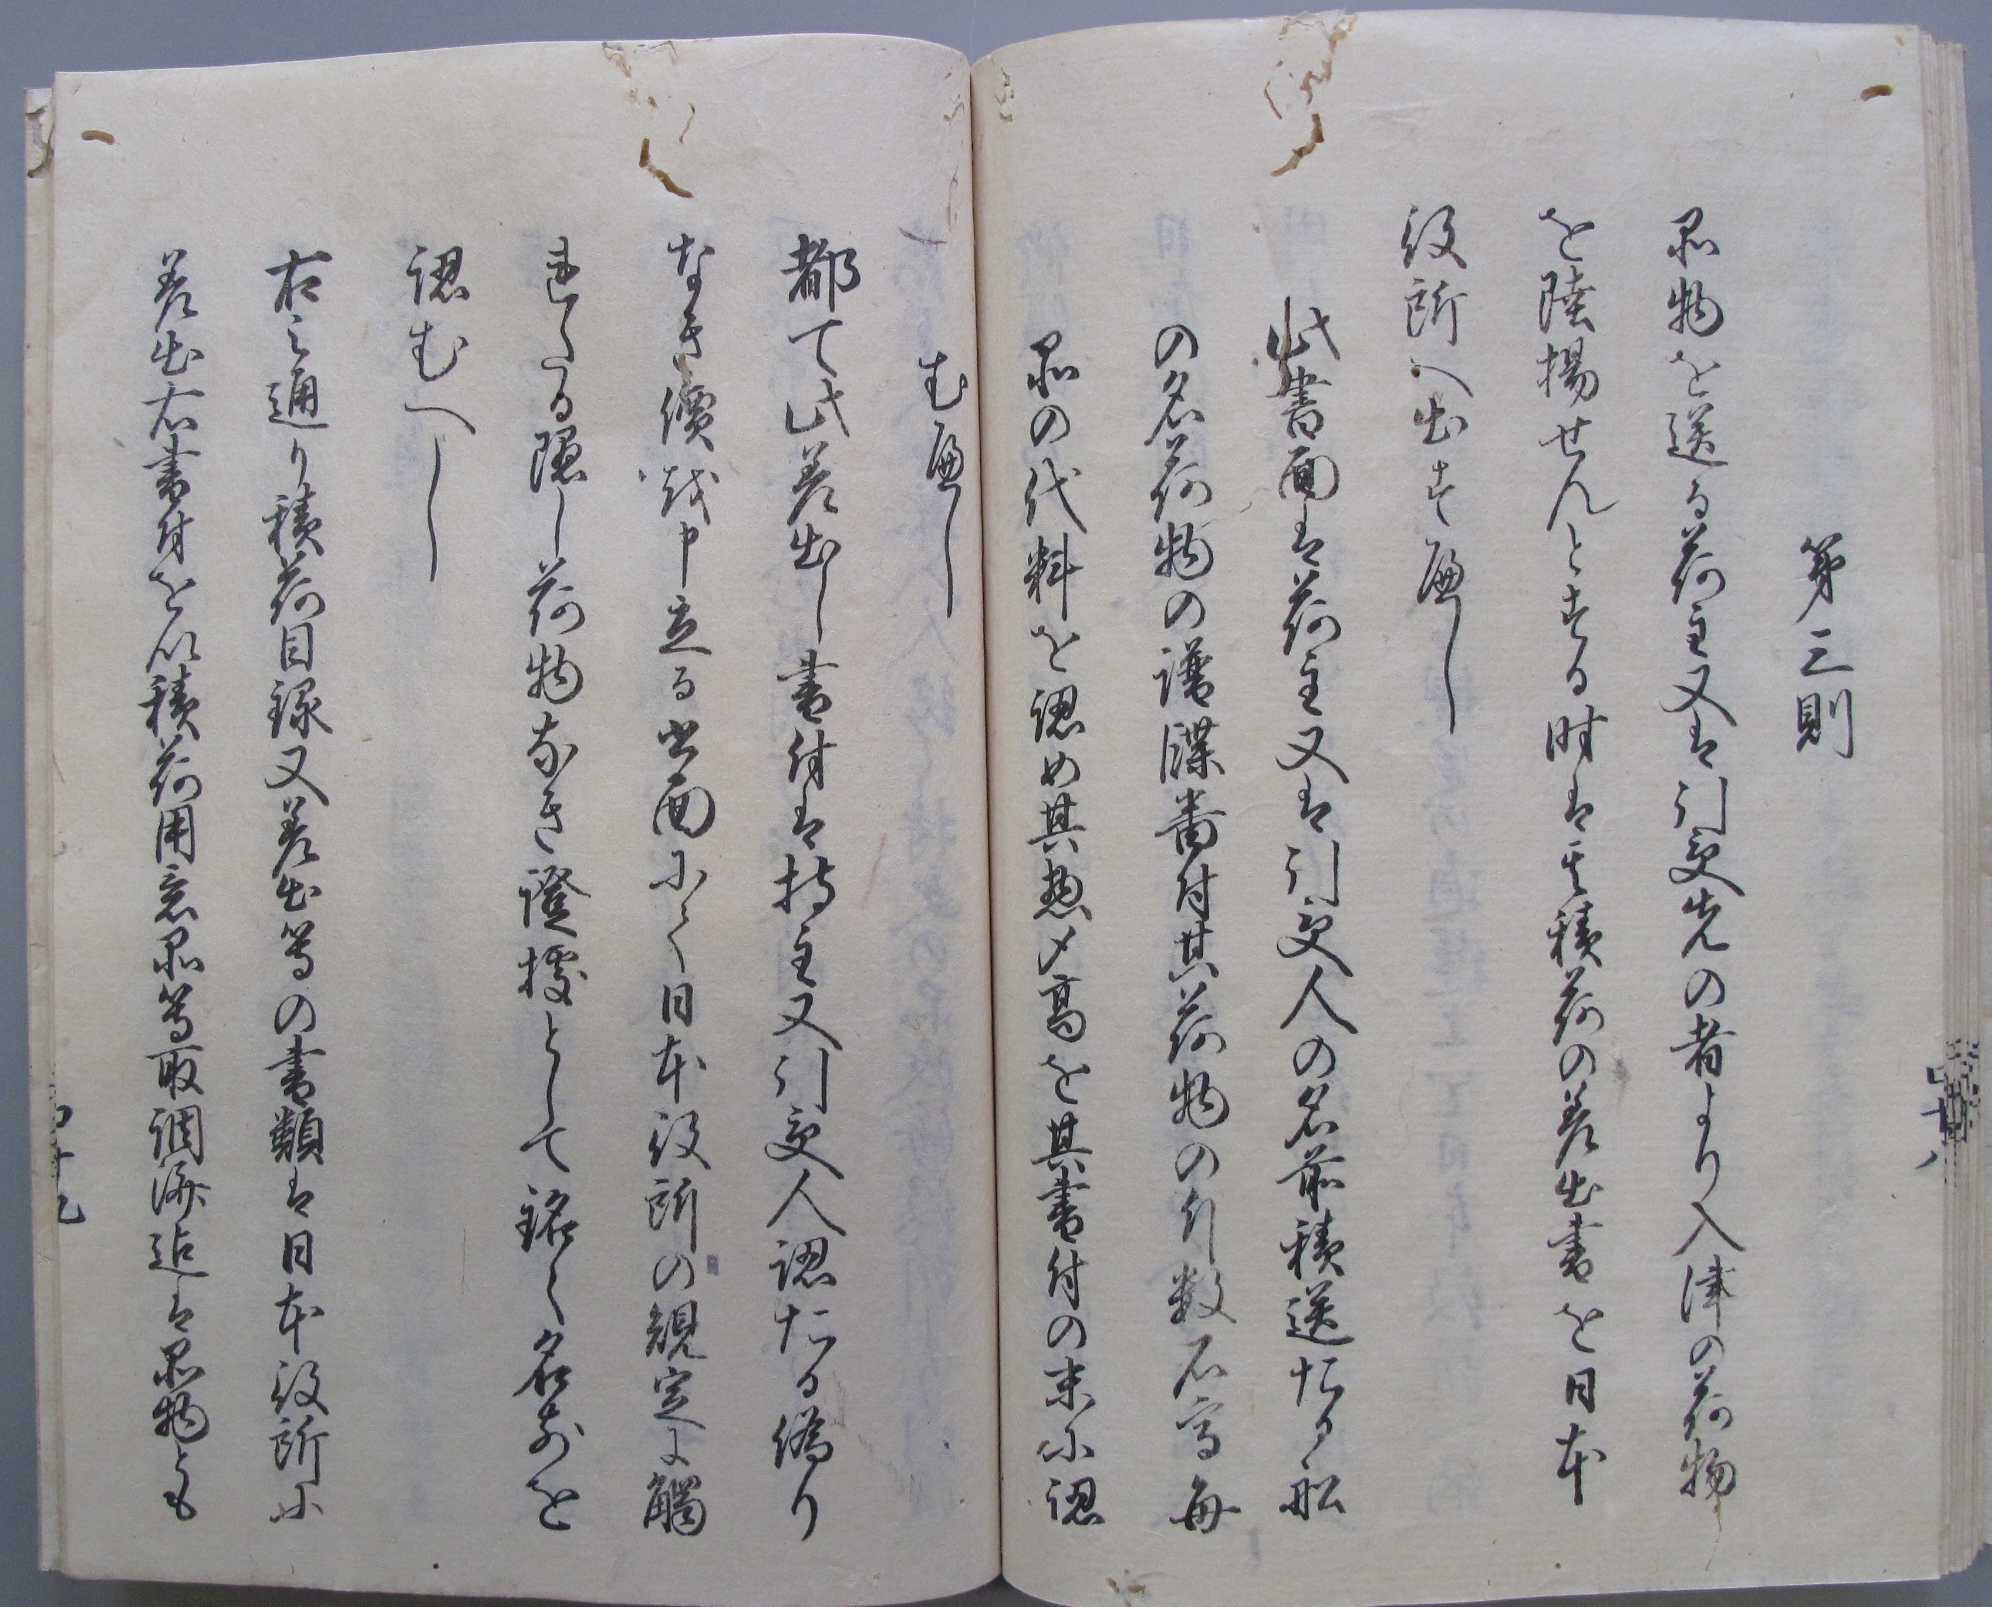 第三則
品物を送る荷主又は引受先の者より入津の荷物
を陸揚せんとする時は其積荷の差出書を日本
役所へ出す遍し
此書面は荷主又は引受人の名前積送たる船
の名荷物の譜牒番付其荷物の斤数石高毎
品の代料を認め其惣〆高を其書付の末に認
む遍し
都て此差出し書付は持主又引受人認たる偽り
なき價越申立る書面にて日本役所の規定に觸
れたる隠し荷物なき證據として銘々名前を
認むへし
右之通り積荷目録又差出等の書類は日本役所に
差出右書付を以積荷用意品等取調済迄は品物とも
四十八
四十九